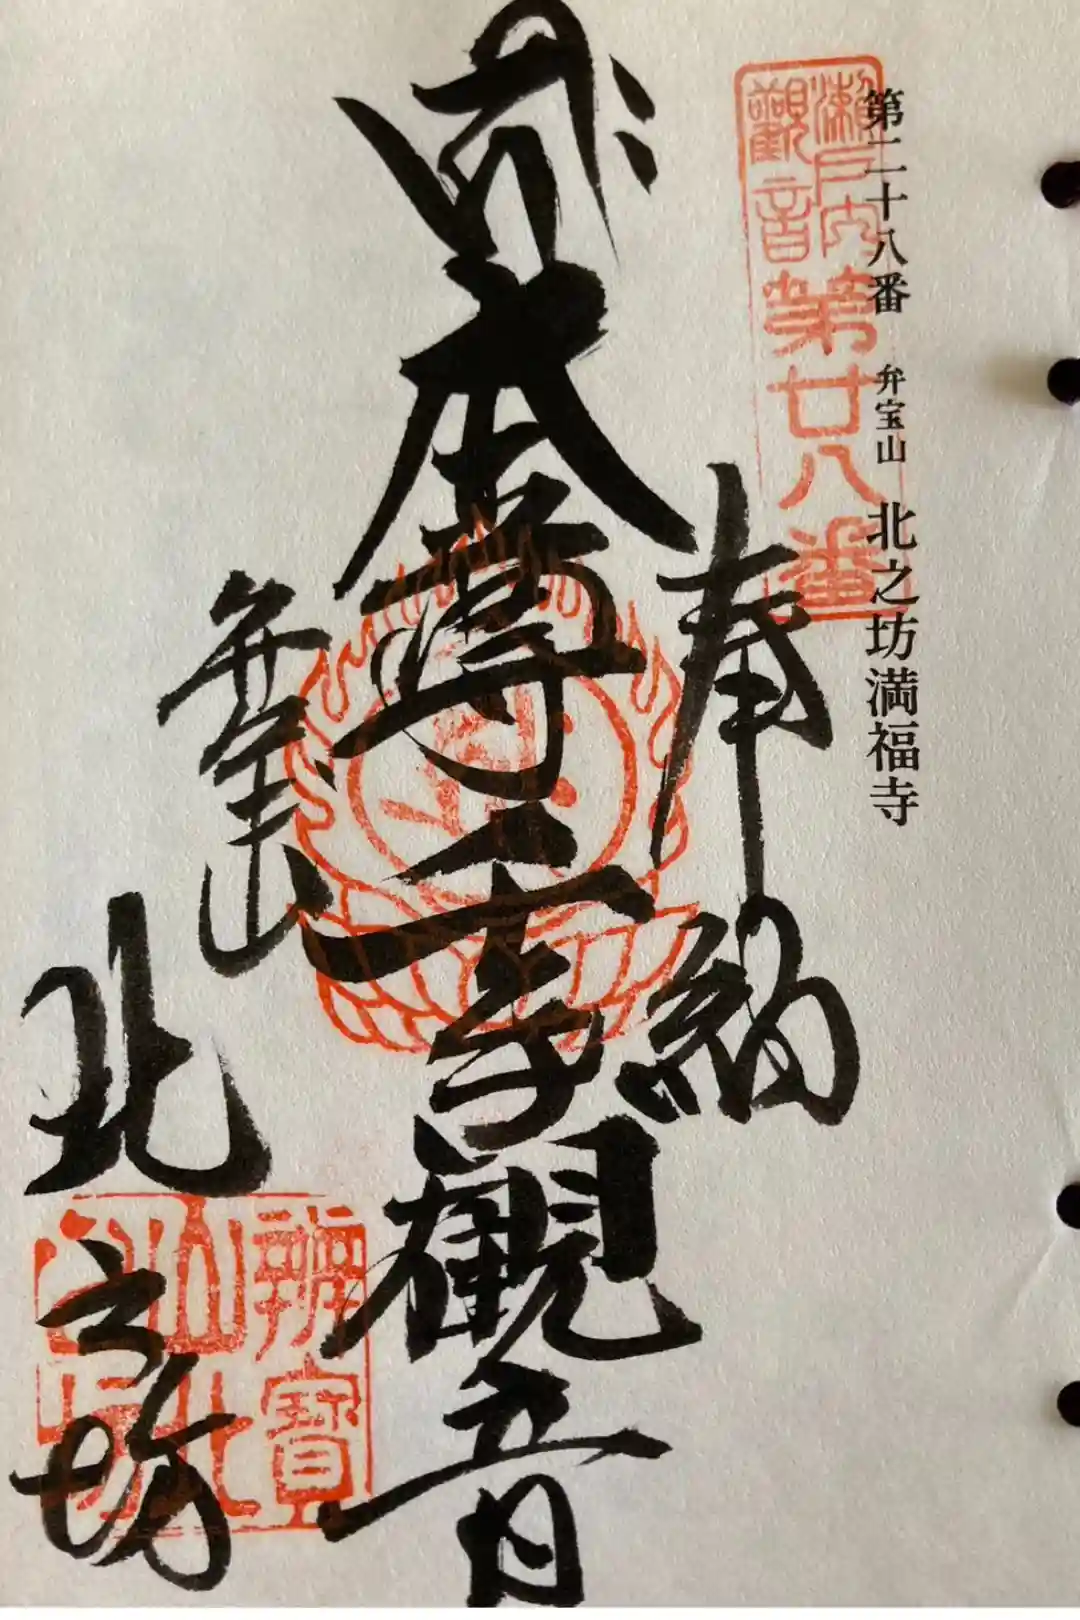 第二十八番 弁宝山 北之坊満福寺
瀬戸内
觀音
第廿八番
奉納
本尊聖観音
弁宝山
北之坊
辨寶
山北
坊